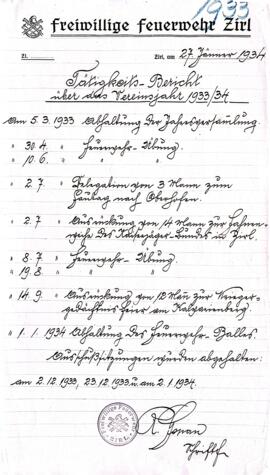 1933
freiwillige feuerwehr Zirl
Zl.
Zirl, am 27. Jänner 1934
Tätigkeits-Bericht
über das Vereinsjahr 1933/34
Am 5.3.1933 Abhaltung der Jahresversamlung
" 30.4. " Feuerwehr-Übung.
" 10.6. " "
" 2.7. Delegation von 3 Mann zum
nach Oberhofen.
" 2.7. Ausrückung von 14 Mann zur Fahnen-
weihe des Kaiserjäger-Bundes in Zirl.
" 8.7. Feuerwehr-Übung
" 19.8. " "
" 14.9. Ausrückung von 12 Mann zur Krieger-
gedächtnisfeier am Kalvarienberg.
" 1.1.1934 Abhaltung des Feuerwehr-Balles.
Ausschußsitzungen wurden abgehalten:
am 2.12.1933, 23.12.1933. u. am 2.1.1934.
Freiwillige Feuerwehr
ZIRL
Schriftf.